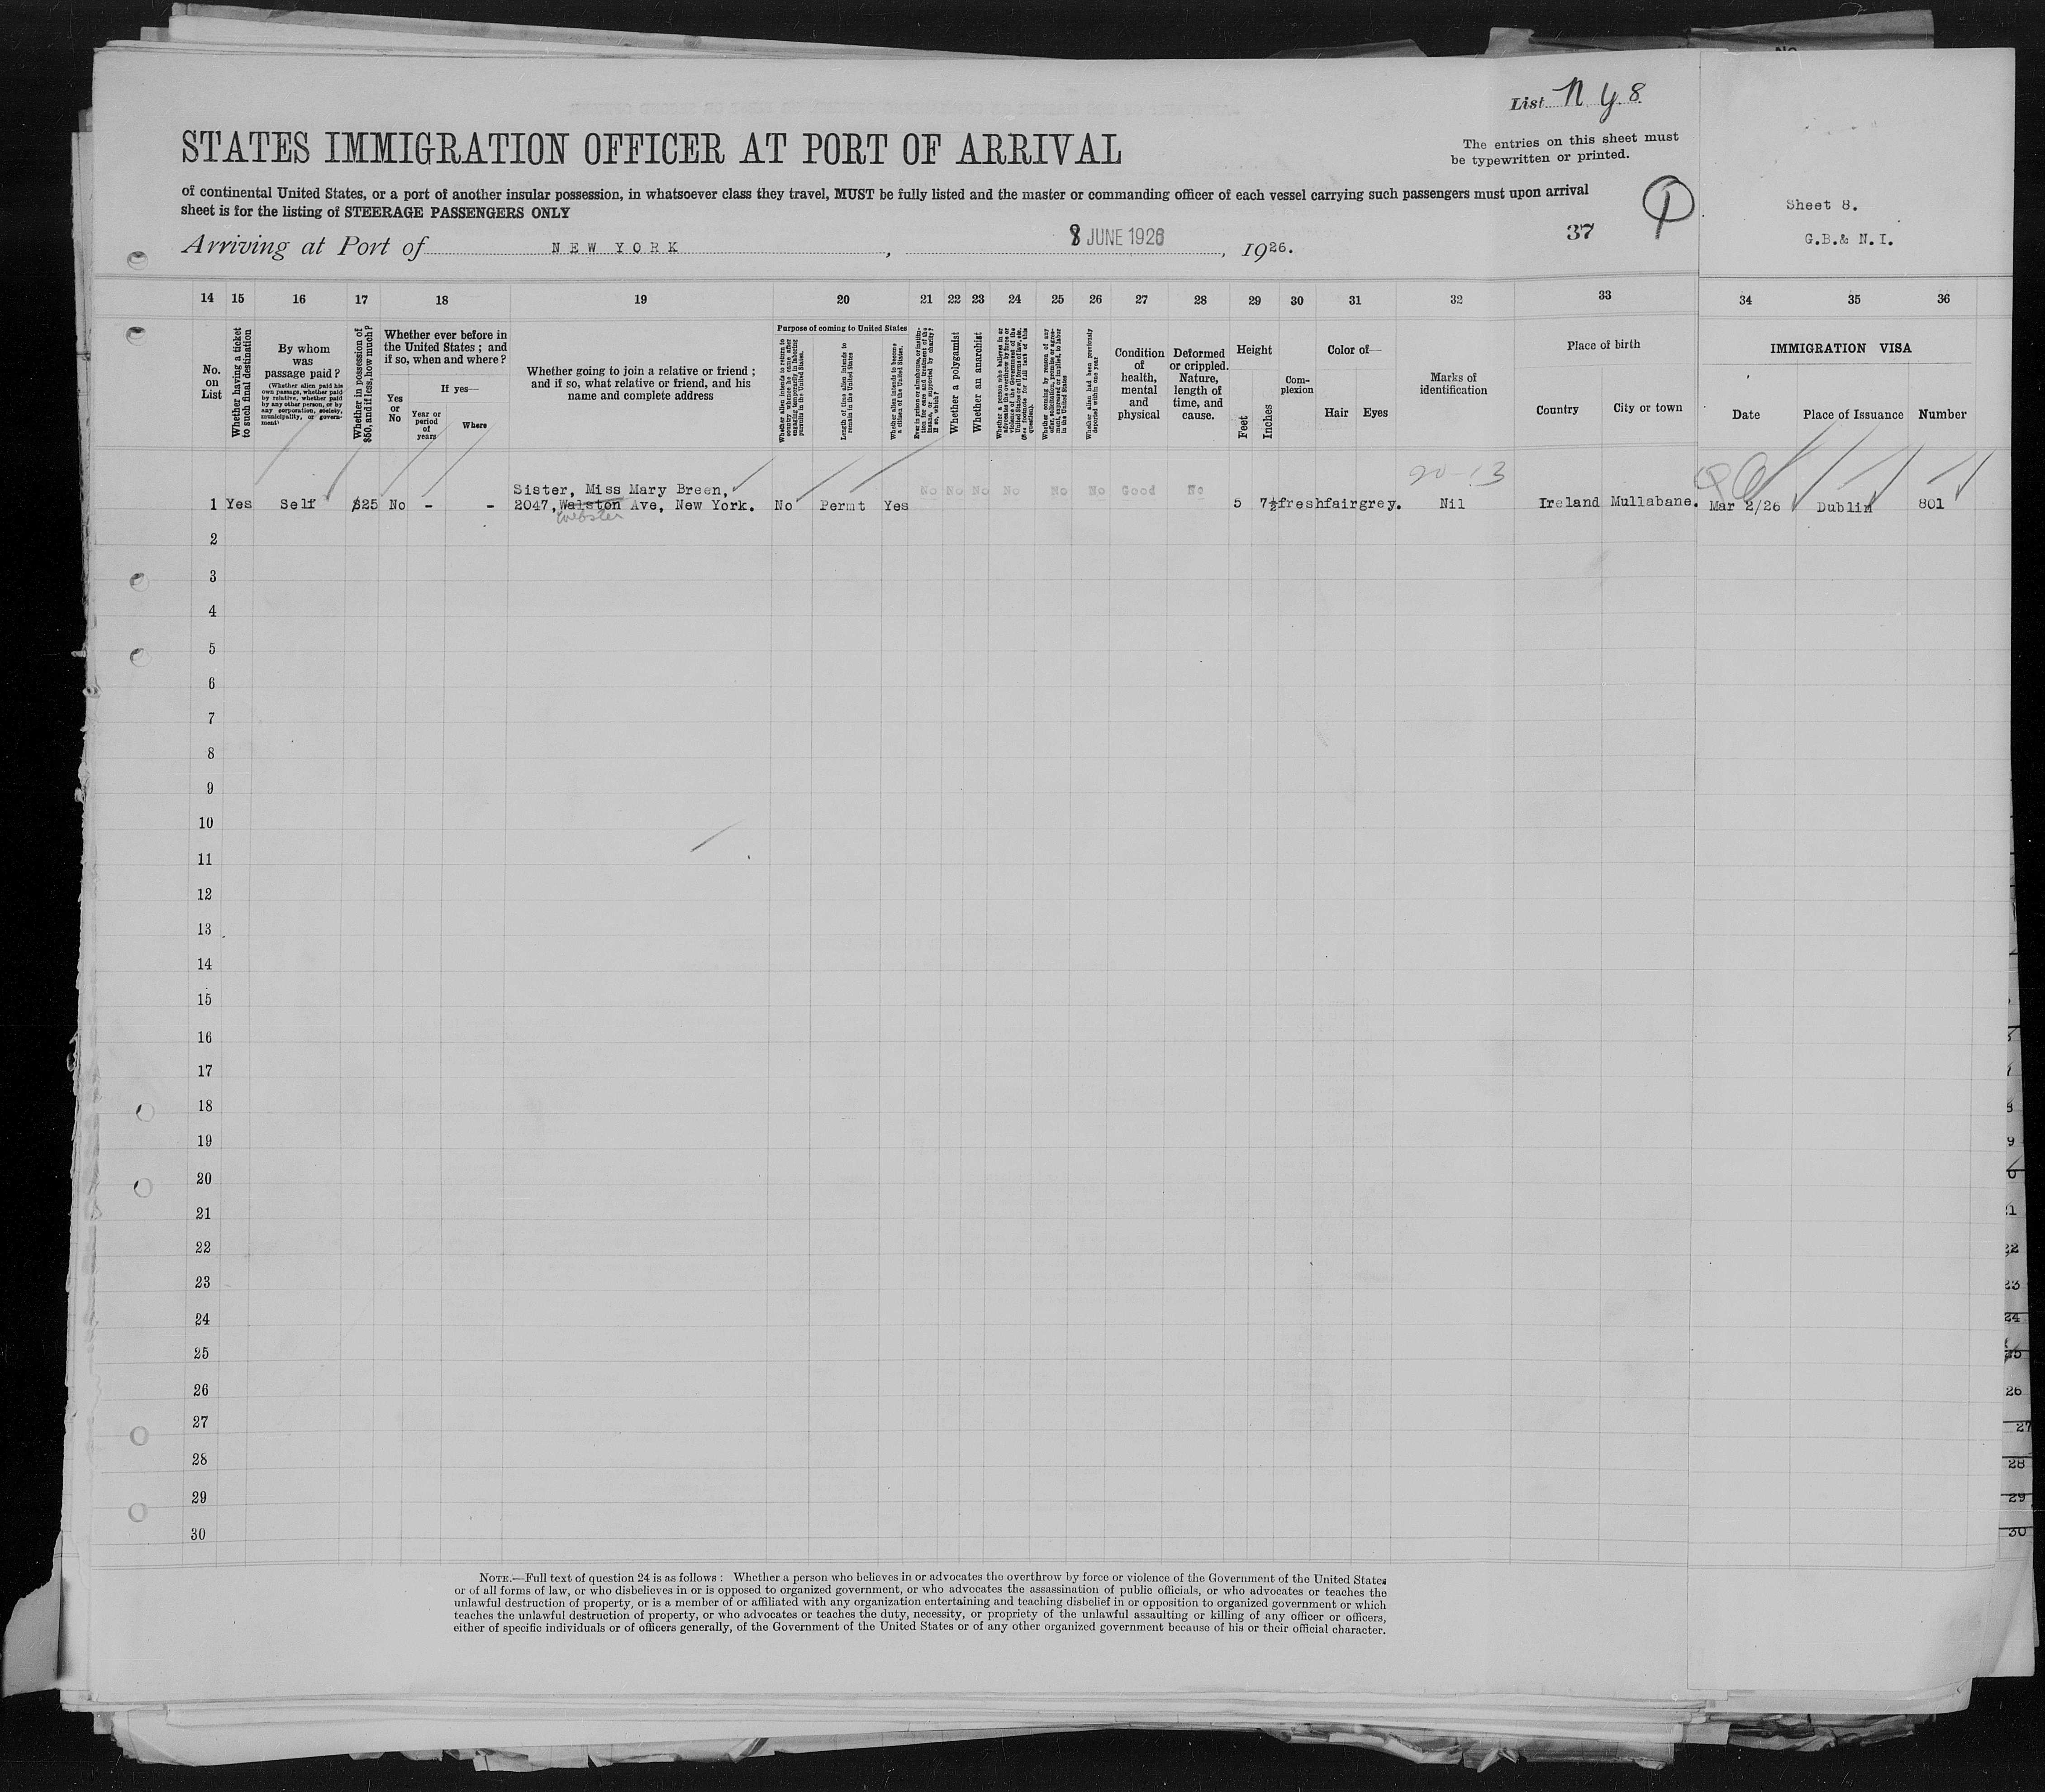 List N Y 8
STATES IMMIGRATION OFFICER AT PORT OF ARRIVAL
The entries on this sheet must
be typewritten or printed.
of continental United States, or a port of another insular possession, in whatsoever class they travel, MUST be fully listed and the master or commanding officer of each vessel carrying such passengers must upon arrival
sheet is for the listing of STEERAGE PASSENGERS ONLY
Sheet 8.
G.B.& N.I.
Arriving at Port of NEW YORK, 8 JUNE 1926, 1926.
37
14 15 16 17 18 19 20 21 22 23 24 25 26 27 28 29 30 31 32 33 34 35 36
No. on List
Whether having a ticket to such final destination
By whom was passage paid?
(Whether alien paid his own passage, whether paid by relative, whether paid by any other person, or by any corporation, society, municipality, or government)
Whether in possession of $50, and if less, how much?
Whether ever before in the United States; and if so, when and where?
Yes or No
If yes—
Year or period of years
Where
Whether going to join a relative or friend; and if so, what relative or friend, and his name and complete address
Purpose of coming to United States
Whether alien intends to return to country whence he came after engaging temporarily in laboring pursuits in the United States.
Length of time alien intends to remain in the United States
Whether alien intends to become a citizen of the United States.
Ever in prison or almshouse, or institution for care and treatment of the insane, or supported by charity? If so, which?
Whether a polygamist
Whether an anarchist
Whether a person who believes in or advocates the overthrow by force or violence of the Government of the United States or all forms of law, etc. (See footnote for full text of this question).
Whether coming by reason of any offer, solicitation, promise or agreement, expressed or implied, to labor in the United States
Whether alien had been previously deported within one year
Condition of health, mental and physical
Deformed or crippled. Nature, length of time, and cause.
Height
Feet
Inches
Complexion
Color of—
Hair
Eyes
Marks of identification
Place of birth
Country
City or town
IMMIGRATION VISA
Date
Place of Issuance
Number
20-13
Sister, Miss Mary Breen,
1 Yes Self $25 No - - 2047, Walston Ave, New York. No Permt Yes No No No No No No Good No 5 7½ fresh fair grey. Nil Ireland Mullabane. Mar 2/26 Dublin 801
Webster
2
3
4
5
6
7
8
9
10
11
12
13
14
15
16
17
18
19
20
21
22
23
24
25
26
27
28
29
30
NOTE.—Full text of question 24 is as follows: Whether a person who believes in or advocates the overthrow by force or violence of the Government of the United States
or of all forms of law, or who disbelieves in or is opposed to organized government, or who advocates the assassination of public officials, or who advocates or teaches the
unlawful destruction of property, or is a member of or affiliated with any organization entertaining and teaching disbelief in or opposition to organized government or which
teaches the unlawful destruction of property, or who advocates or teaches the duty, necessity, or propriety of the unlawful assaulting or killing of any officer or officers,
either of specific individuals or of officers generally, of the Government of the United States or of any other organized government because of his or their official character.